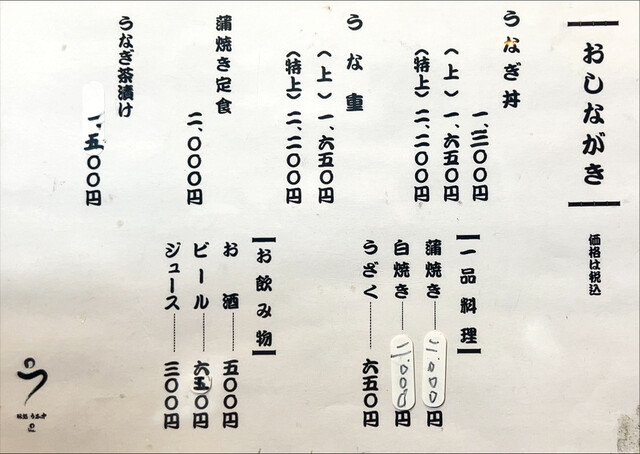 おしながき
価格は税込
うなぎ丼
一、三〇〇円
(上) 一、六五〇円
(特上) 二、二〇〇円
うな重
(上) 一、六五〇円
(特上) 二、二〇〇円
蒲焼き定食
二、〇〇〇円
うなぎ茶漬け
一、五〇〇円
一品料理
蒲焼き 二、〇〇〇円
白焼き 二、〇〇〇円
うざく 六五〇円
お飲み物
お酒 五〇〇円
ビール 六五〇円
ジュース 三〇〇円
う